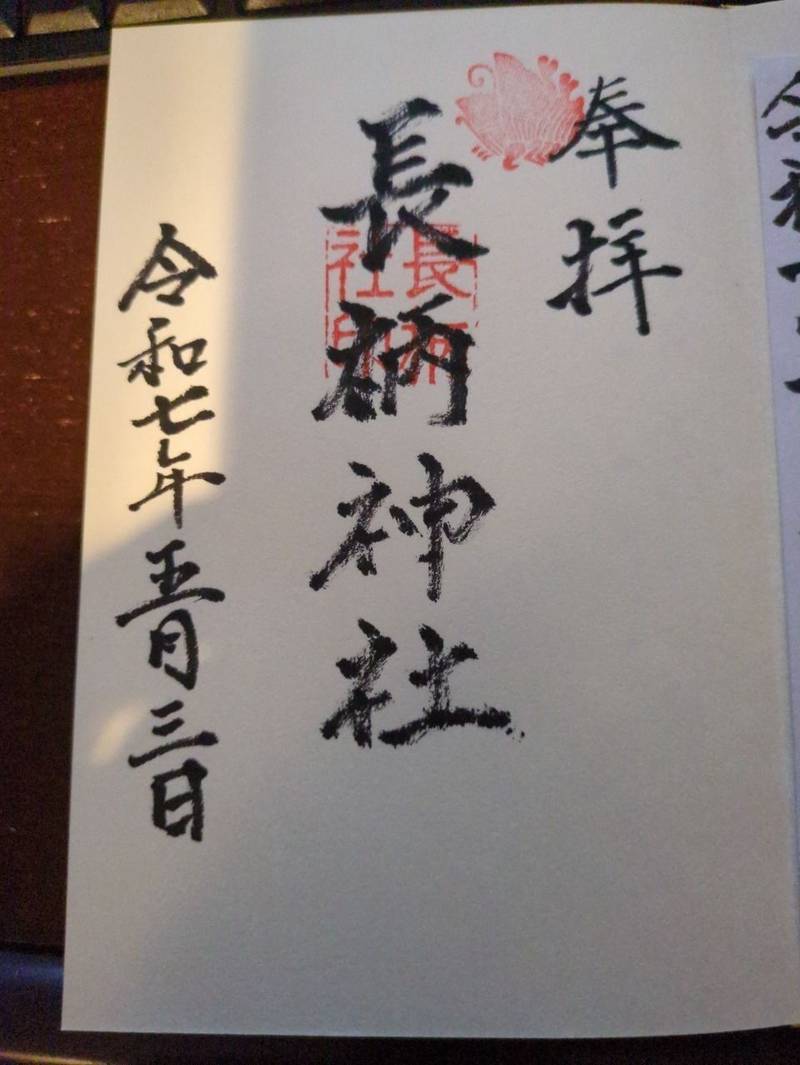 奉拝
長柄神社
長柄
社印
令和七年五月三日
令和七